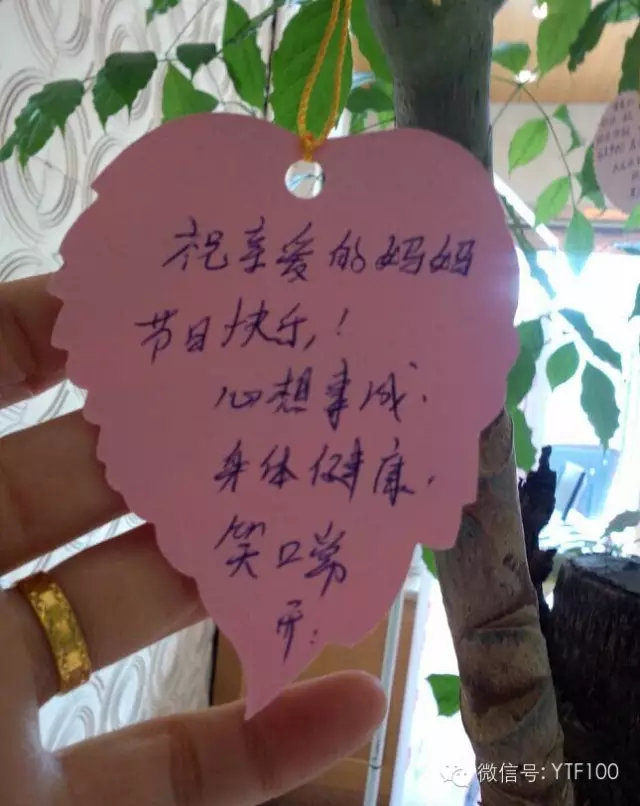 祝亲爱的妈妈
节日快乐,!
心想事成.
身体健康,
笑口常
开:
微信号: YTF100